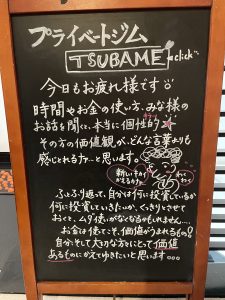 プライベートジム
TSUBAME click
今日もお疲れ様です
時間やお金の使い方、みな様の
お話を聞くと、本当に個性的
その方の価値観が、どんな言葉よりも
感じとれるナ…と思います。
新しいキカイ
がきた
ふとふり返って、自分は何に投資しているか
何に投資していきたいか、くっきりとさせて
おくと、ムダ使いがなくなるかもしれません…
お金は使てこそ、価値がうまれるもの?
自分、そして大切な方にとって価値
あるものにかえてゆきたいと思います…